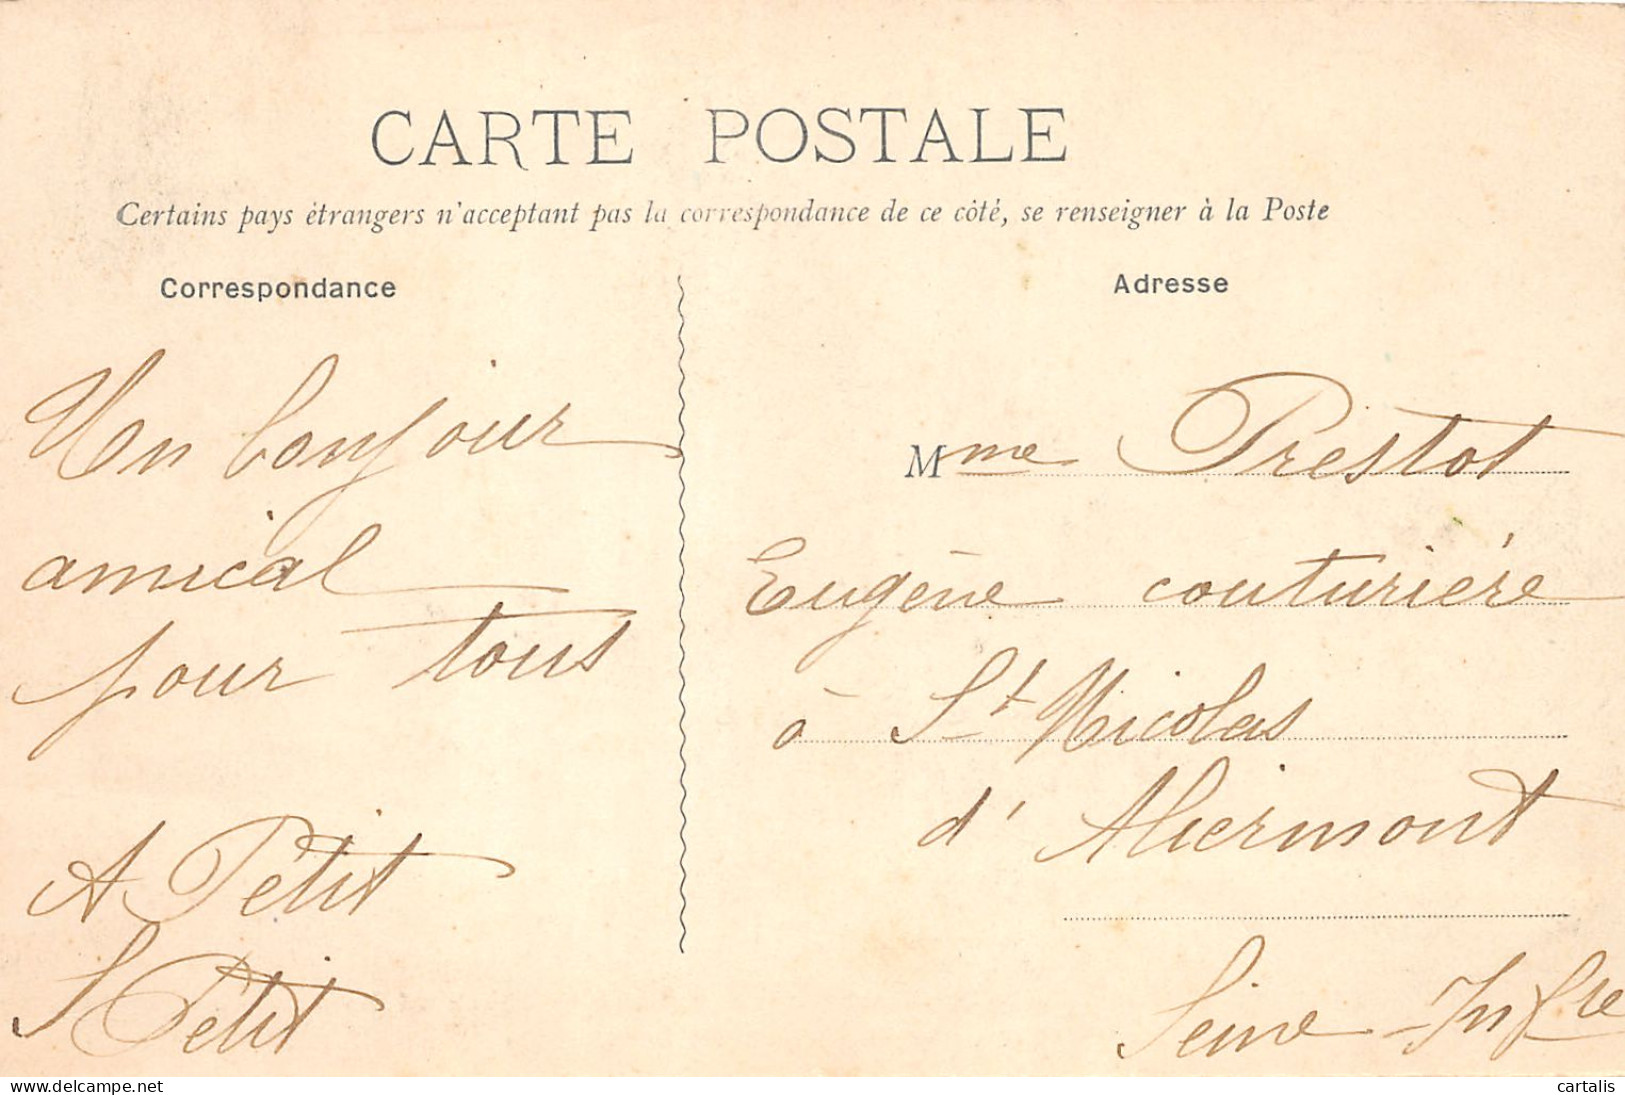 CARTE POSTALE
Certains pays étrangers n'acceptant pas la correspondance de ce côté, se renseigner à la Poste
Correspondance
Un bonjour
amical
pour tous
A Petit
S Petit
Adresse
Mme Prestot
Eugène couturière
à St Nicolas
d'Aliermont
Seine-Infre
delcampe.net
cartalis